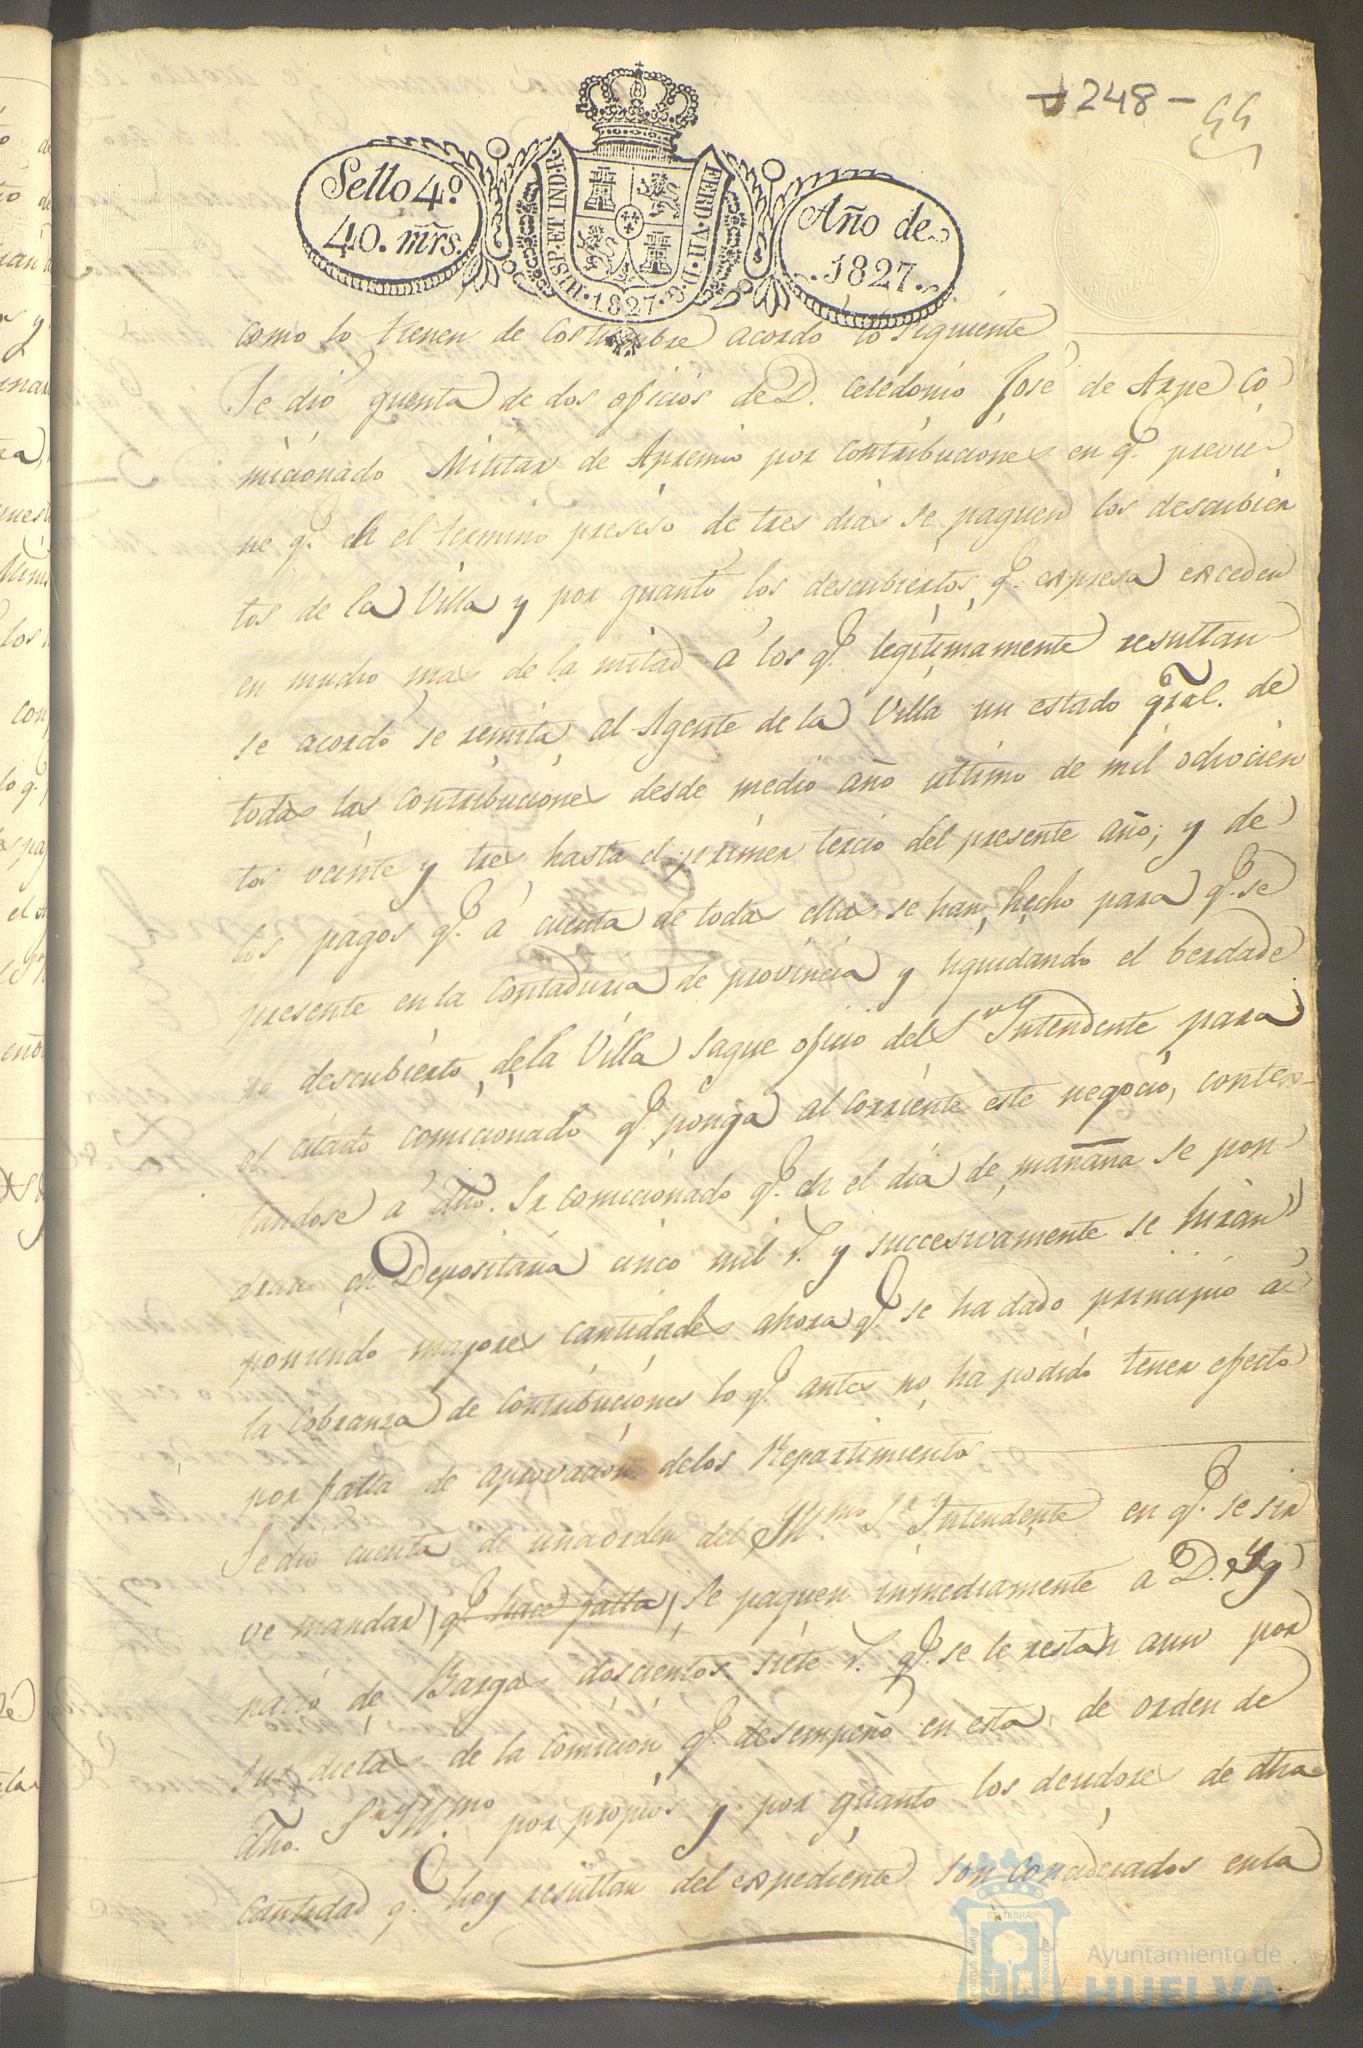 248 - 55
Sello 4º
40. mrs.
HISP. ET IND. R.
FERD. VII. D. G.
1827
Año de
1827.
como lo tienen de costumbre acordó lo siguiente
Se dió quenta de dos oficios de D. Celedonio José de Arpe Co
micionado Militar de Apremio por contribuciones en q.e previe
ne q.e en el termino preciso de tres dias se paguen los descubier
tos de la Villa y por quanto los descubiertos q.e expresa exceden
en mucho mas de la mitad á los q.e legitimamente resultan
se acordó se remita al Agente de la Villa un estado gral. de
todas las contribuciones desde medio año ultimo de mil ochocien
tos veinte y tres hasta el primer tercio del presente año; y de
los pagos q.e á cuenta de todas ellas se han hecho para q.e se
presente en la Contaduria de provincia y liquidando el berdade
ro descubierto de la Villa saque oficio del Sr Yntendente para
el citado comicionado q.e ponga al corriente este negocio, contes-
tandose á dho. Sr comicionado q.e en el dia de mañana se pon
dran en Depositaria cinco mil r. y succesivamente se hiran
poniendo mayores cantidades ahora q.e se ha dado principio á
la cobranza de contribuciones lo q.e antes no ha podido tener efecto
por falta de aprovacion delos Repartimientos
Se dió cuenta de una orden del Yll.mo Sr Yntendente en q.e se sir
ve mandar (q.e hace falta) se paguen inmediamente a D. Yg
nacio de Barga doscientos siete r. q.e se le restan aun por
sus dietas de la comicion q.e desempeñó en esta de orden de
dho. Sr Yll.mo por propios y por quanto los deudores de dha
cantidad q.e hoy resultan del expediente son conciderados enla
Ayuntamiento de
HUELVA